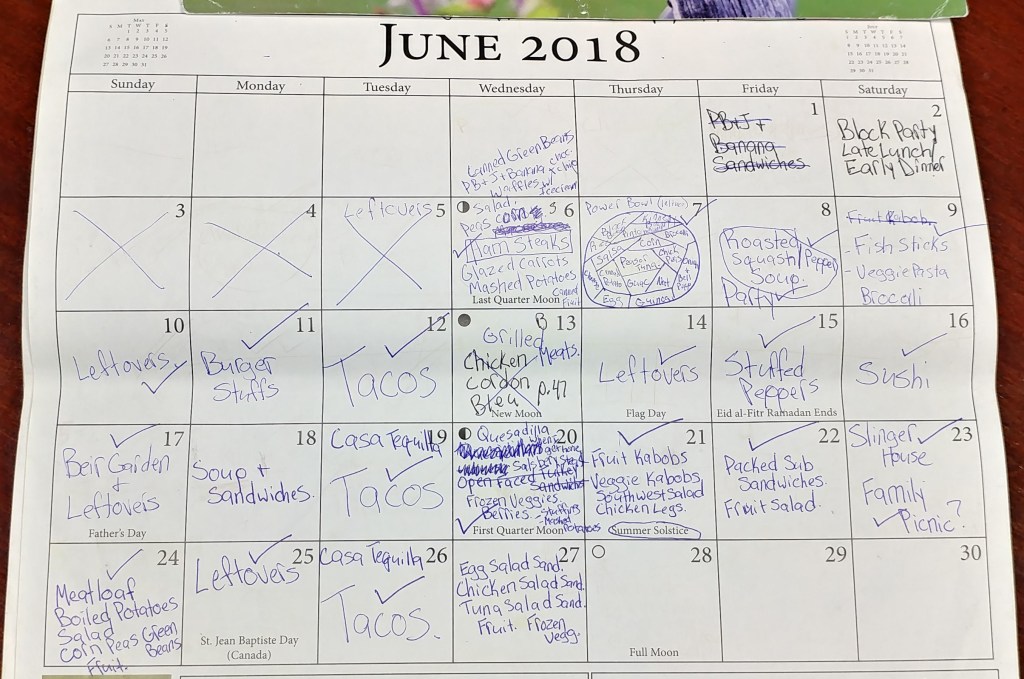 JUNE 2018
Sunday Monday Tuesday Wednesday Thursday Friday Saturday
Canned Green Beans
PB+J+Banana
choc.
chip
Waffles w/
Icecream
1
PB+J+
Banana
Sandwiches
2
Block Party
Late Lunch/
Early Dinner
3
4
Leftovers 5
6
Salad
Peas Corn
Ham Steaks
Glazed Carrots
Mashed Potatoes
Canned
Fruit
Last Quarter Moon
7
Power Bowl
Corn
Salsa
Tuna
Guac
Egg
8
Roasted
Squash/Pepper
Soup
Party
9
Fruit Kabobs
- Fish Sticks
- Veggie Pasta
Broccoli
10
Leftovers
11
Burger
Stuffs
12
Tacos
13
Grilled
Meats.
Chicken
Cordon
Bleu p.47
New Moon
14
Leftovers
Flag Day
15
Stuffed
Peppers
Eid al-Fitr Ramadan Ends
16
Sushi
17
Beir Garden
+
Leftovers
Father's Day
18
Soup +
Sandwiches.
Casa Tequilla 19
Tacos
20
Quesadilla
Open Faced Turkey
Sandwiches
Frozen Veggies
Berries
- Stuffing
- Mashed
Potatoes
First Quarter Moon
21
Fruit Kabobs
Veggie Kabobs
Southwest Salad
Chicken Legs.
Summer Solstice
22
Packed Sub
Sandwiches.
Fruit Salad.
23
Slinger
House
Family
Picnic?
24
Meatloaf
Boiled Potatoes
Salad
Corn Peas Green
Beans
Fruit.
25
Leftovers
St. Jean Baptiste Day
(Canada)
Casa Tequilla 26
Tacos.
27
Egg Salad Sand.
Chicken Salad Sand.
Tuna Salad Sand.
Fruit. Frozen
Vegg.
28
Full Moon
29
30